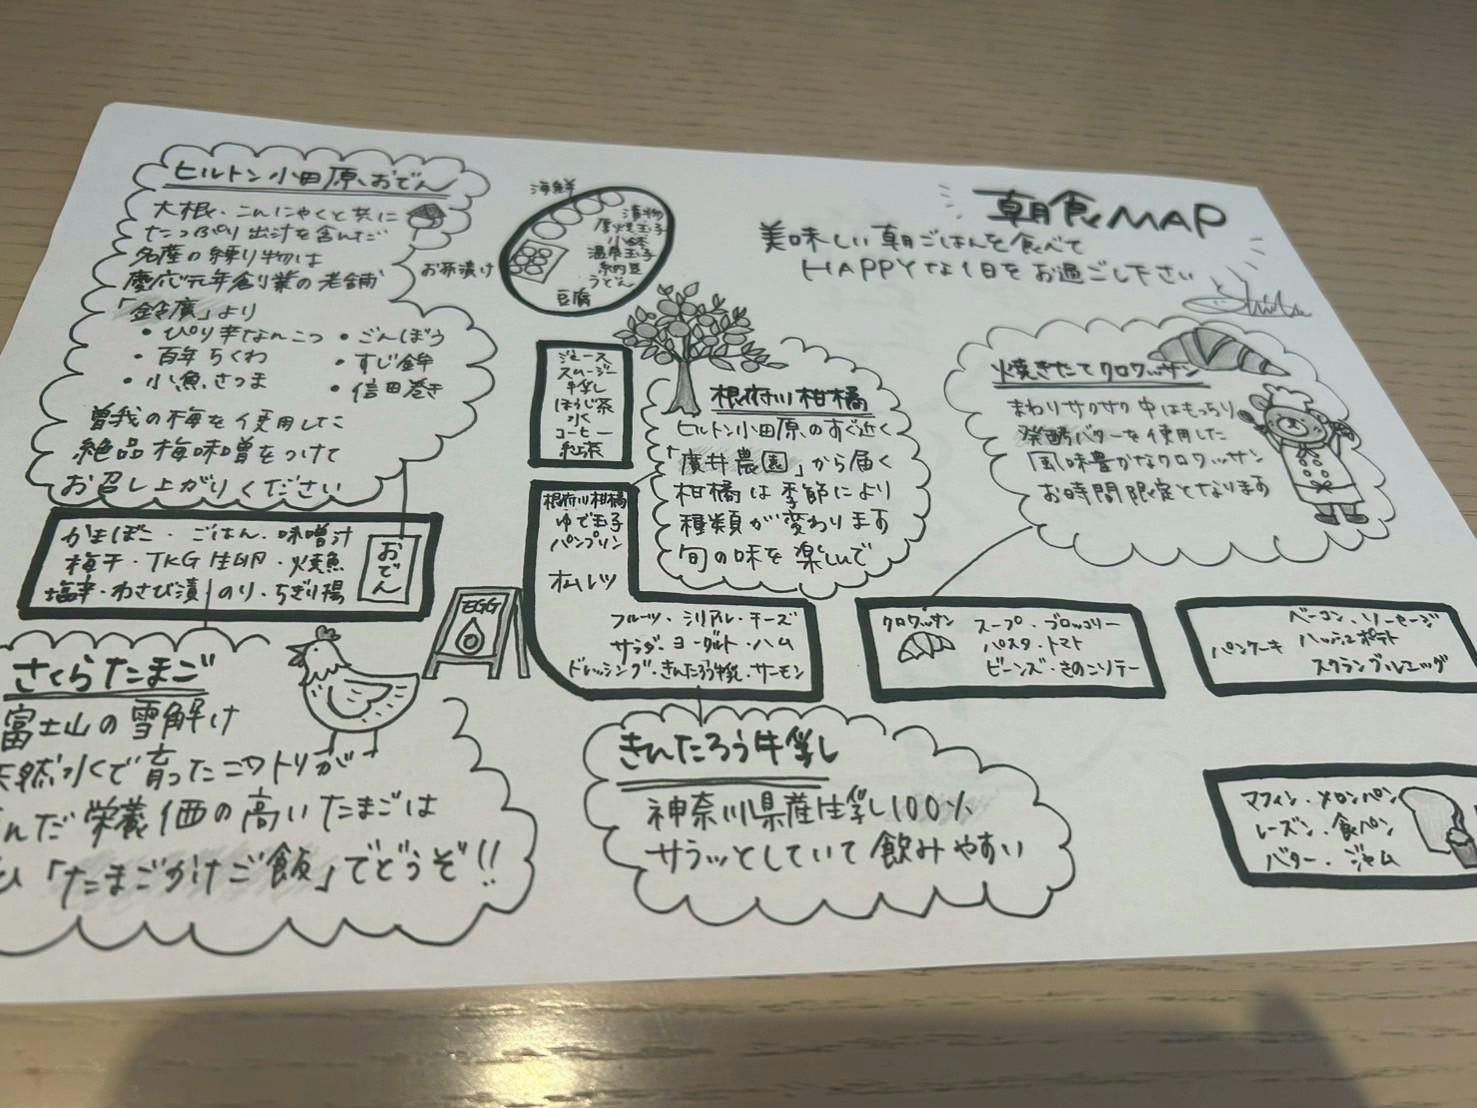 朝食MAP
美味しい朝ごはんを食べて
HAPPYな1日をお過ごし下さい
ヒルトン小田原おでん
大根・こんにゃくと共に
たっぷり出汁を含んだ
名産の練り物は
慶応元年創業の老舗
「鈴廣」より
・ぴり辛なんこつ ・ごんぼう
・百年ちくわ ・すじ鉾
・小魚さつま ・信田巻き
曽我の梅を使用した
絶品梅味噌をつけて
お召し上がりください
海鮮
漬物
厚焼玉子
小鉢
温泉玉子
納豆
うどん
お茶漬け
豆腐
ジュース
スムージー
牛乳
ほうじ茶
水
コーヒー
紅茶
根府川柑橘
ヒルトン小田原のすぐ近く
「廣井農園」から届く
柑橘は季節により
種類が変わります
旬の味を楽しんで
焼きたてクロワッサン
まわりサクサク中はもっちり
発酵バターを使用した
風味豊かなクロワッサン
お時間限定となります
かまぼこ・ごはん・味噌汁
梅干・TKG生卵・焼魚
塩辛・わさび漬 のり・ちぎり揚
おでん
EGG
根府川柑橘
ゆで玉子
パンプリン
オムレツ
フルーツ・シリアル・チーズ
サラダ・ヨーグルト・ハム
ドレッシング・きんたろう牛乳・サーモン
クロワッサン
スープ・ブロッコリー
パスタ・トマト
ビーンズ・きのこソテー
パンケーキ
ベーコン・ソーセージ
ハッシュポテト
スクランブルエッグ
さくらたまご
富士山の雪解け
天然水で育ったニワトリが
んだ栄養価の高いたまごは
「たまごかけご飯」でどうぞ!!
きんたろう牛乳
神奈川県産生乳100%
サラッとしていて飲みやすい
マフィン・メロンパン
レーズン・食パン
バター・ジャム